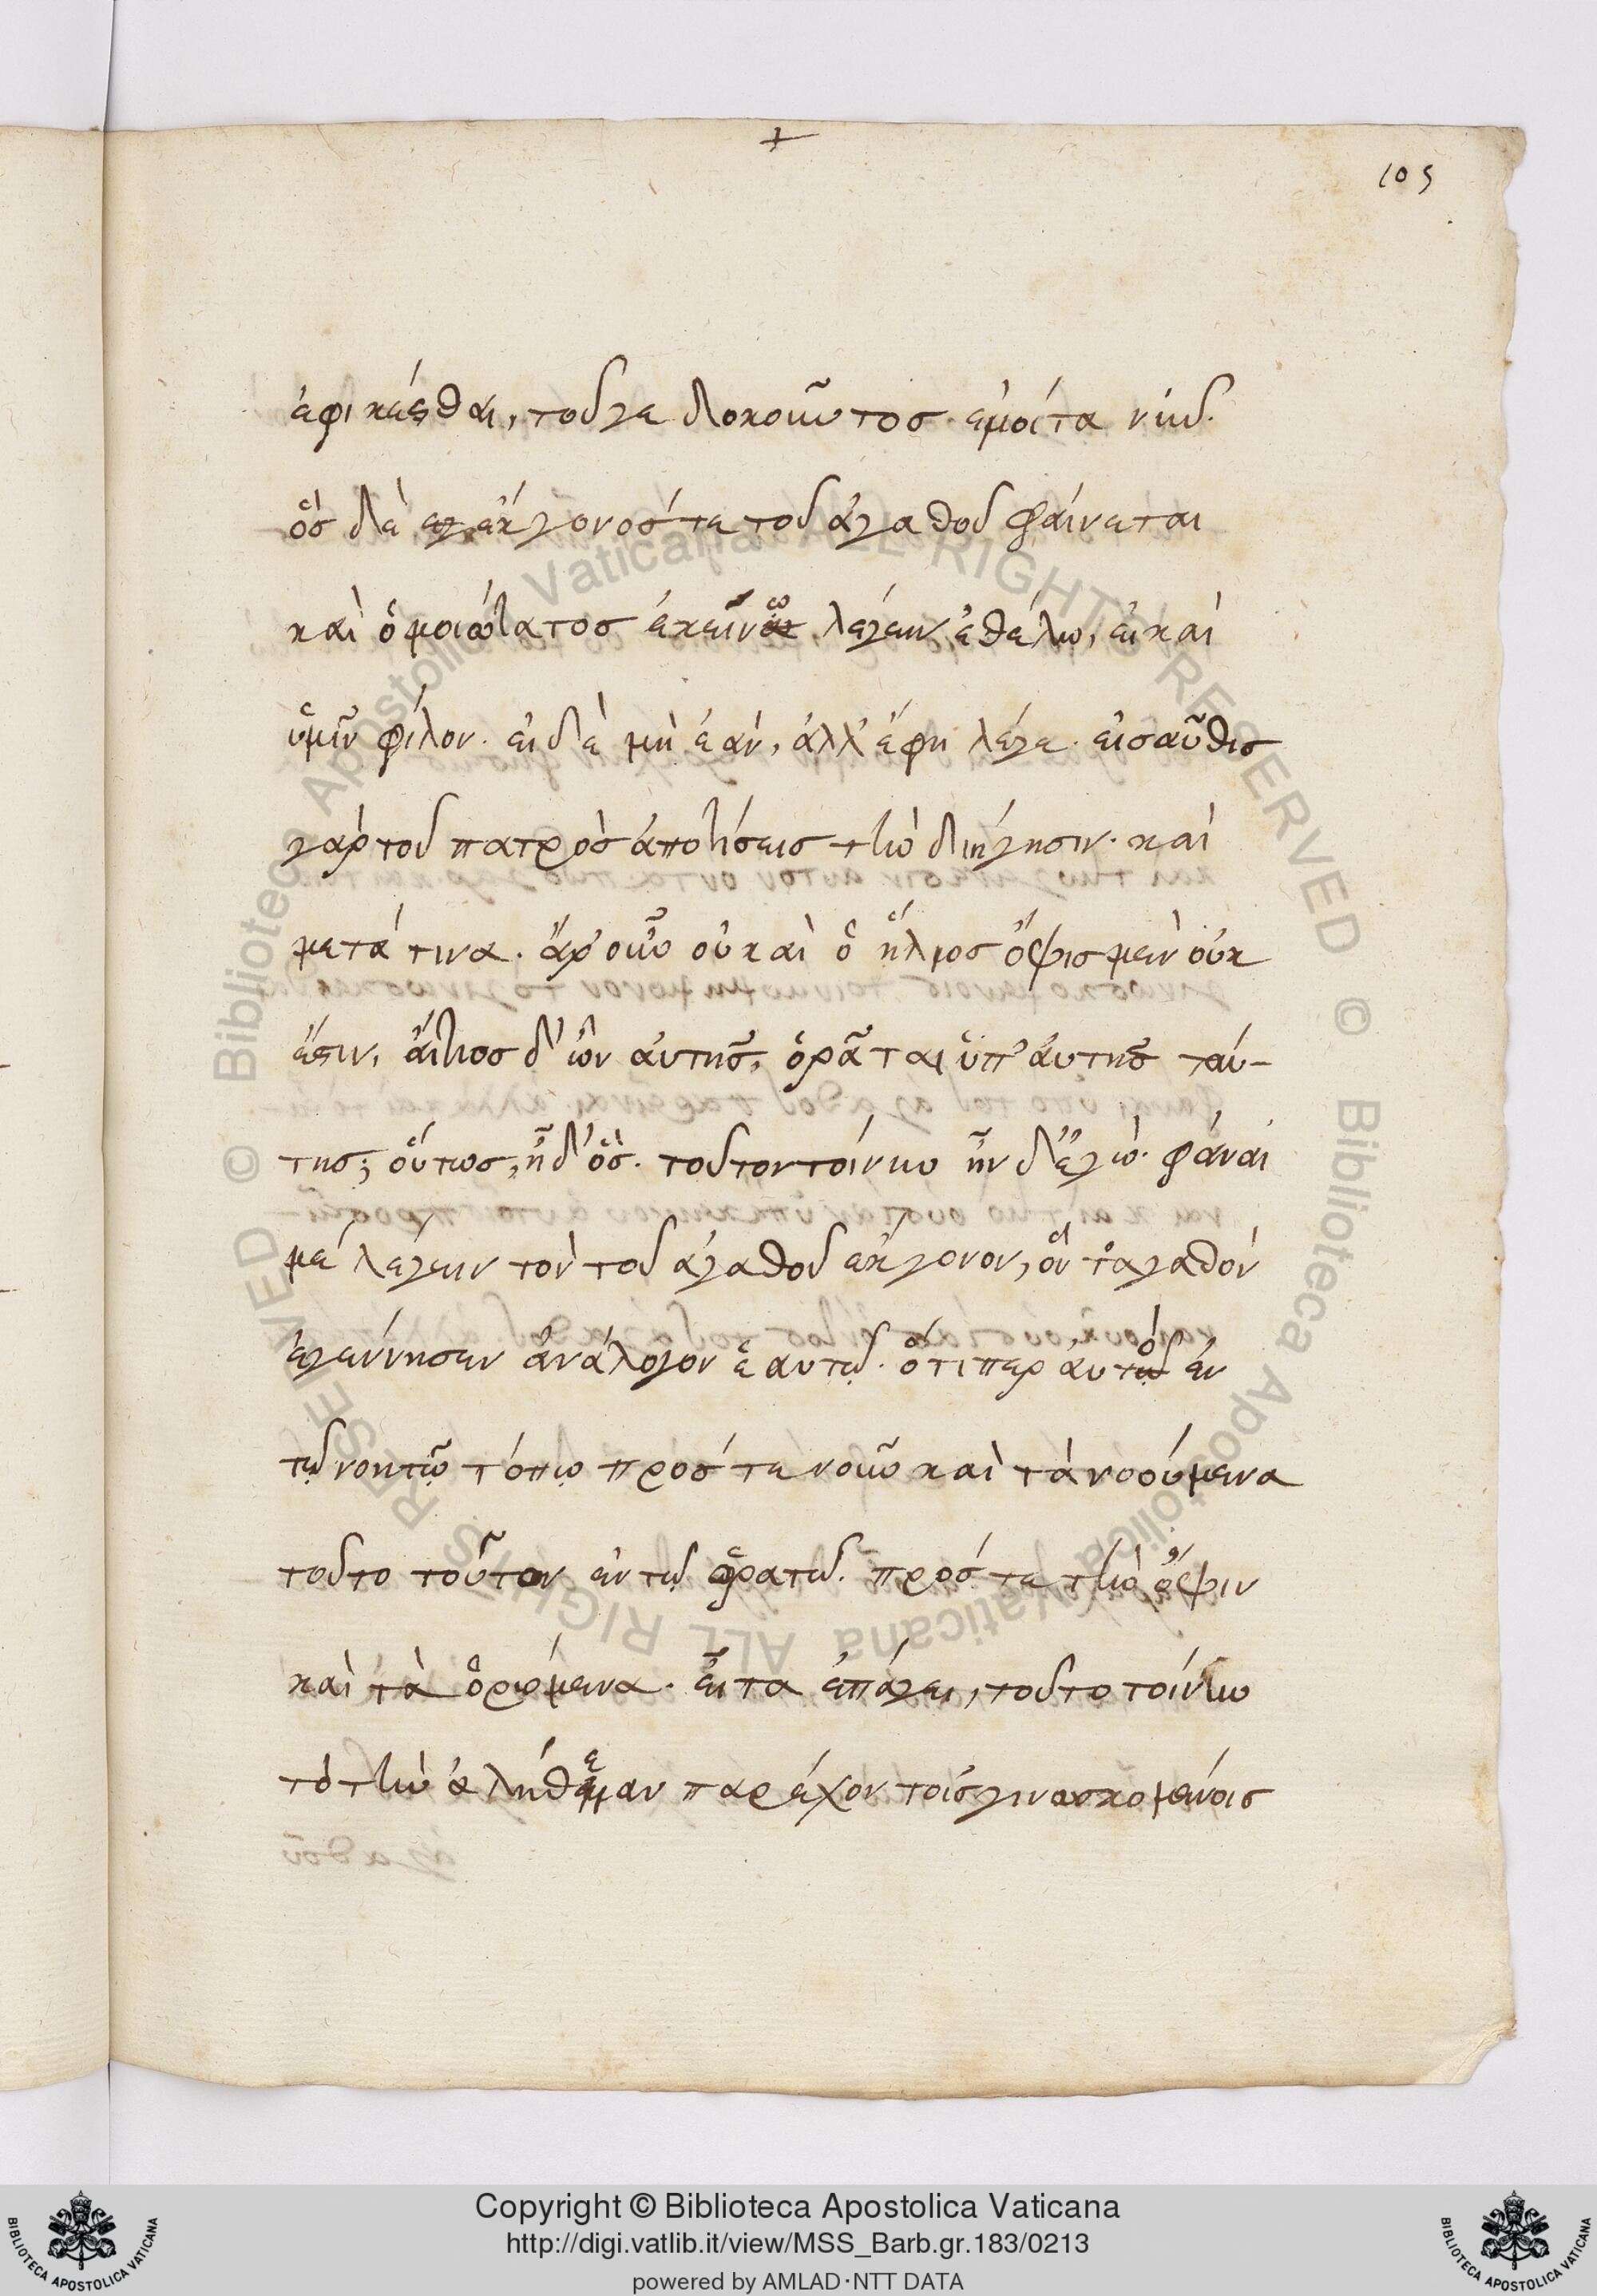 105
ἐφικέσθαι, τοῦγε δοκοῦντος ἐμοί τα νῦν.
ὃς δὲ ἔκγονός τε τοῦ ἀγαθοῦ φαίνεται
καὶ ὁμοιώτατος ἐκείνω λέγειν ἐθέλω, εἰ καὶ
ὑμῖν φίλον. εἰ δὲ μὴ ἐᾶν, ἀλλ' ἔφη λέγε. εἰσαῦθις
γὰρ τοῦ πατρὸς ἀποτίσεις τὴν διήγησιν. καὶ
μετά τινα. ἆρ' οὖν οὐ καὶ ὁ ἥλιος ὄψις μὲν οὐκ
ἔστιν, αἴτιος δ' ὢν αὐτῆς, ὁρᾶται ὑπ' αὐτῆς ταύ-
της; οὕτως, ἦ δ' ὅς. τοῦτον τοίνυν ἦν δ' ἐγώ. φάναι
με λέγειν τὸν τοῦ ἀγαθοῦ ἔκγονον, ὃν τἀγαθὸν
ἐγέννησεν ἀνάλογον ἑαυτῷ. ὅτιπερ αὐτὸ ἐν
τῷ νοητῷ τόπῳ πρός τε νοῦν καὶ τὰ νοούμενα
τοῦτο τοῦτον ἐν τῷ ὁρατῷ. πρός τε τὴν ὄψιν
καὶ τὰ ὁρώμενα. εἶτα ἐπάγει, τοῦτο τοίνυν
τὸ τὴν ἀλήθειαν παρέχον τοῖς γινωσκομένοις
Copyright © Biblioteca Apostolica Vaticana
http://digi.vatlib.it/view/MSS_Barb.gr.183/0213
powered by AMLAD·NTT DATA